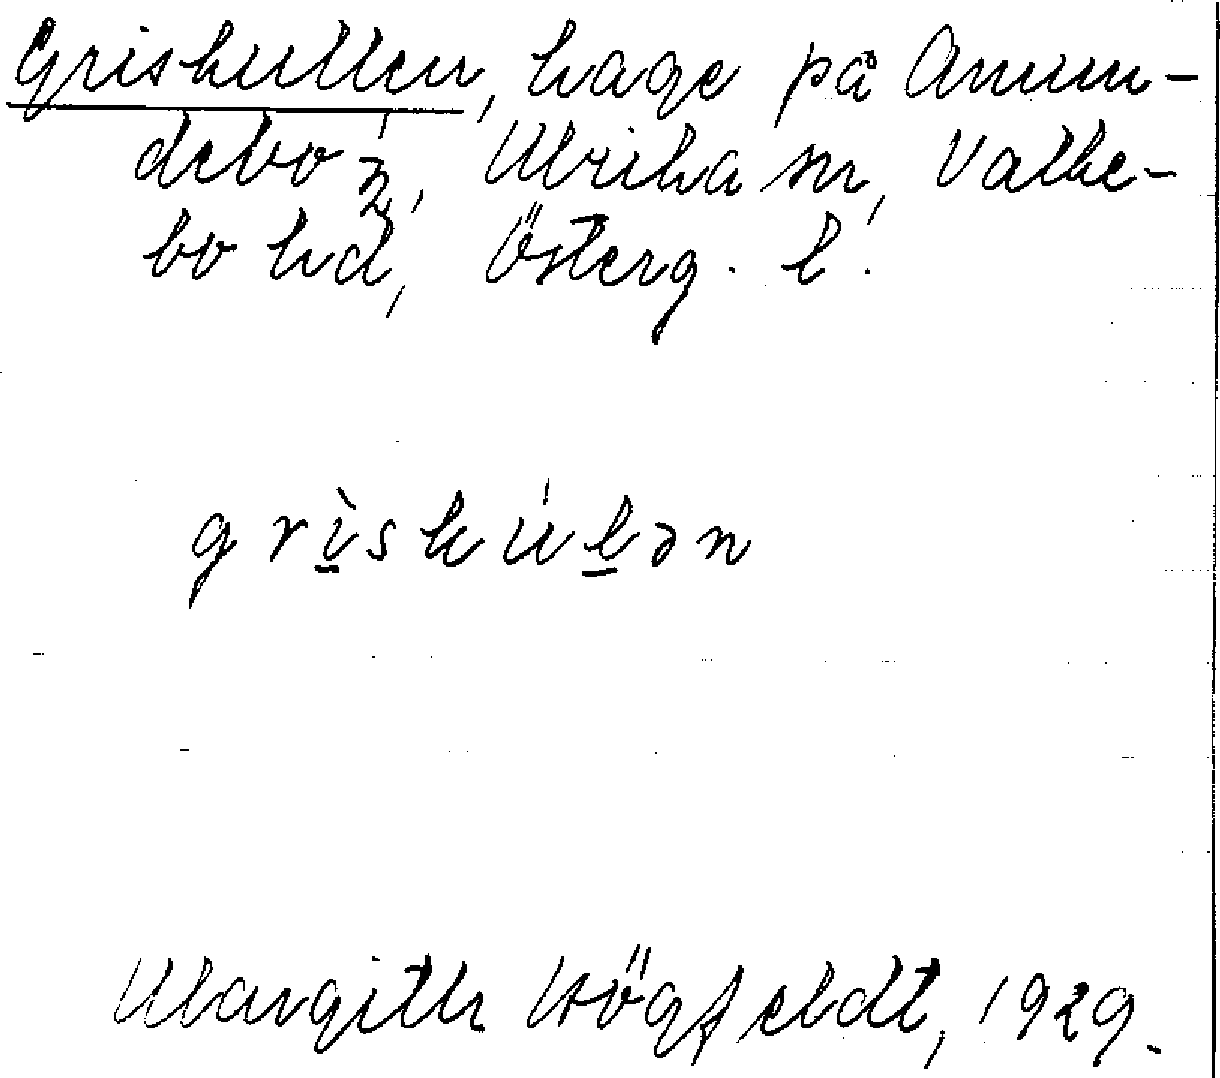 Griskullen, hage på Anun-
debo ½, Ulrika sn, Valke-
bo hd, Österg. l.
grìskúlən
Margith Högfeldt, 1929.